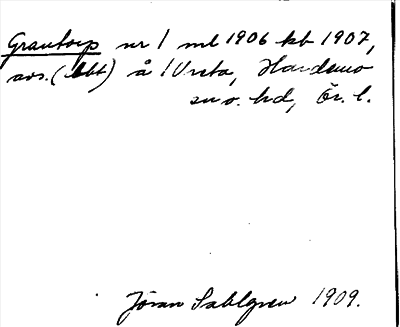 Grantorp nr 1 ml 1906 kb 1907,
avs. (bbt) å 1 Vreta, Hardemo
sn o. hd, Ör. l.
Jöran Sahlgren 1909.